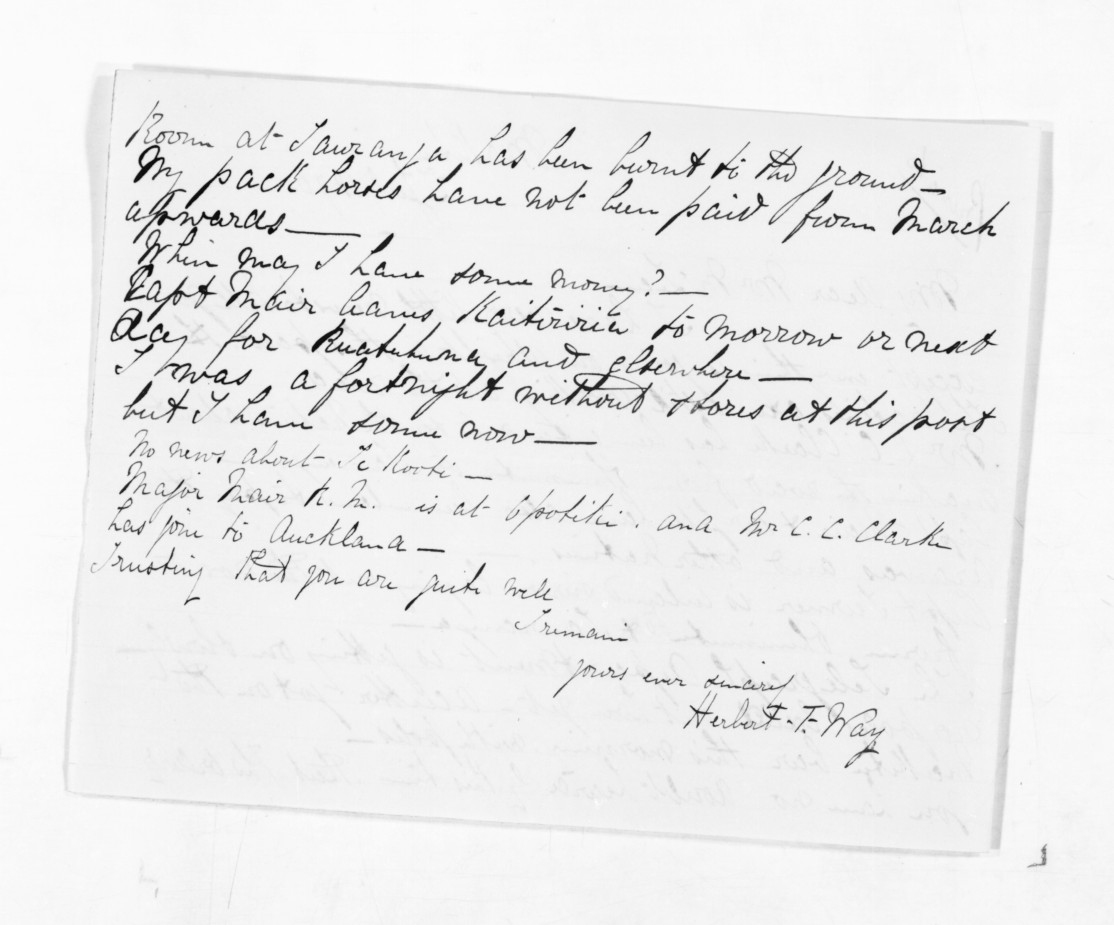 Room at Tauranga has been burnt to the ground—
My pack horses have not been paid from March
upwards—
When may I have some money?—
Capt Mair leaves Kaiteriria to morrow or next
day for Ruatahuna and elsewhere—
I was a fortnight without stores at this post
but I have some now—
No news about Te Kooti—
Major Mair R.M. is at Opotiki. and Mr C. C. Clarke
has gone to Auckland—
Trusting that you are quite well
I remain
yours ever sincerely
Herbert. F. Way